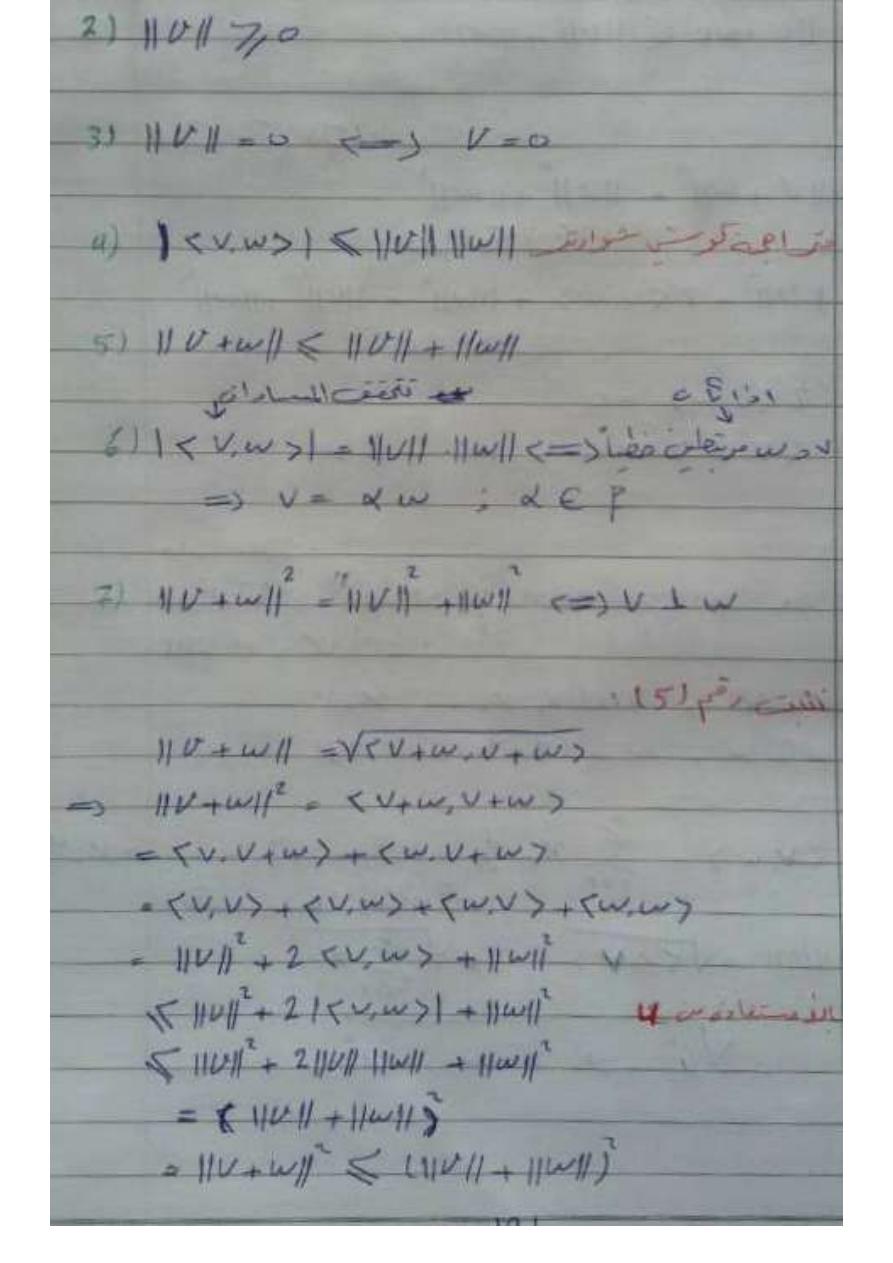 2) ||v|| ⩾ 0
3) ||v|| = 0 <=> v = 0
4) |<v,w>| ⩽ ||v|| ||w|| متراجحة كوشي شوارتز
5) ||v+w|| ⩽ ||v|| + ||w||
تتحقق المساواة اذا
6) |<v,w>| = ||v|| . ||w|| <=> v و w مرتبطين خطياً
=> v = α w ; α ∈
7) ||v+w||² = ||v||² + ||w||² <=> v ⊥ w
نثبت رقم (5) :
||v+w|| = √<v+w,v+w>
=> ||v+w||² = <v+w,v+w>
= <v,v+w> + <w,v+w>
= <v,v> + <v,w> + <w,v> + <w,w>
= ||v||² + 2 <v,w> + ||w||²
⩽ ||v||² + 2 |<v,w>| + ||w||² بالاستفادة من 4
⩽ ||v||² + 2||v|| ||w|| + ||w||²
= ( ||v|| + ||w|| )²
= ||v+w||² ⩽ (||v|| + ||w||)²